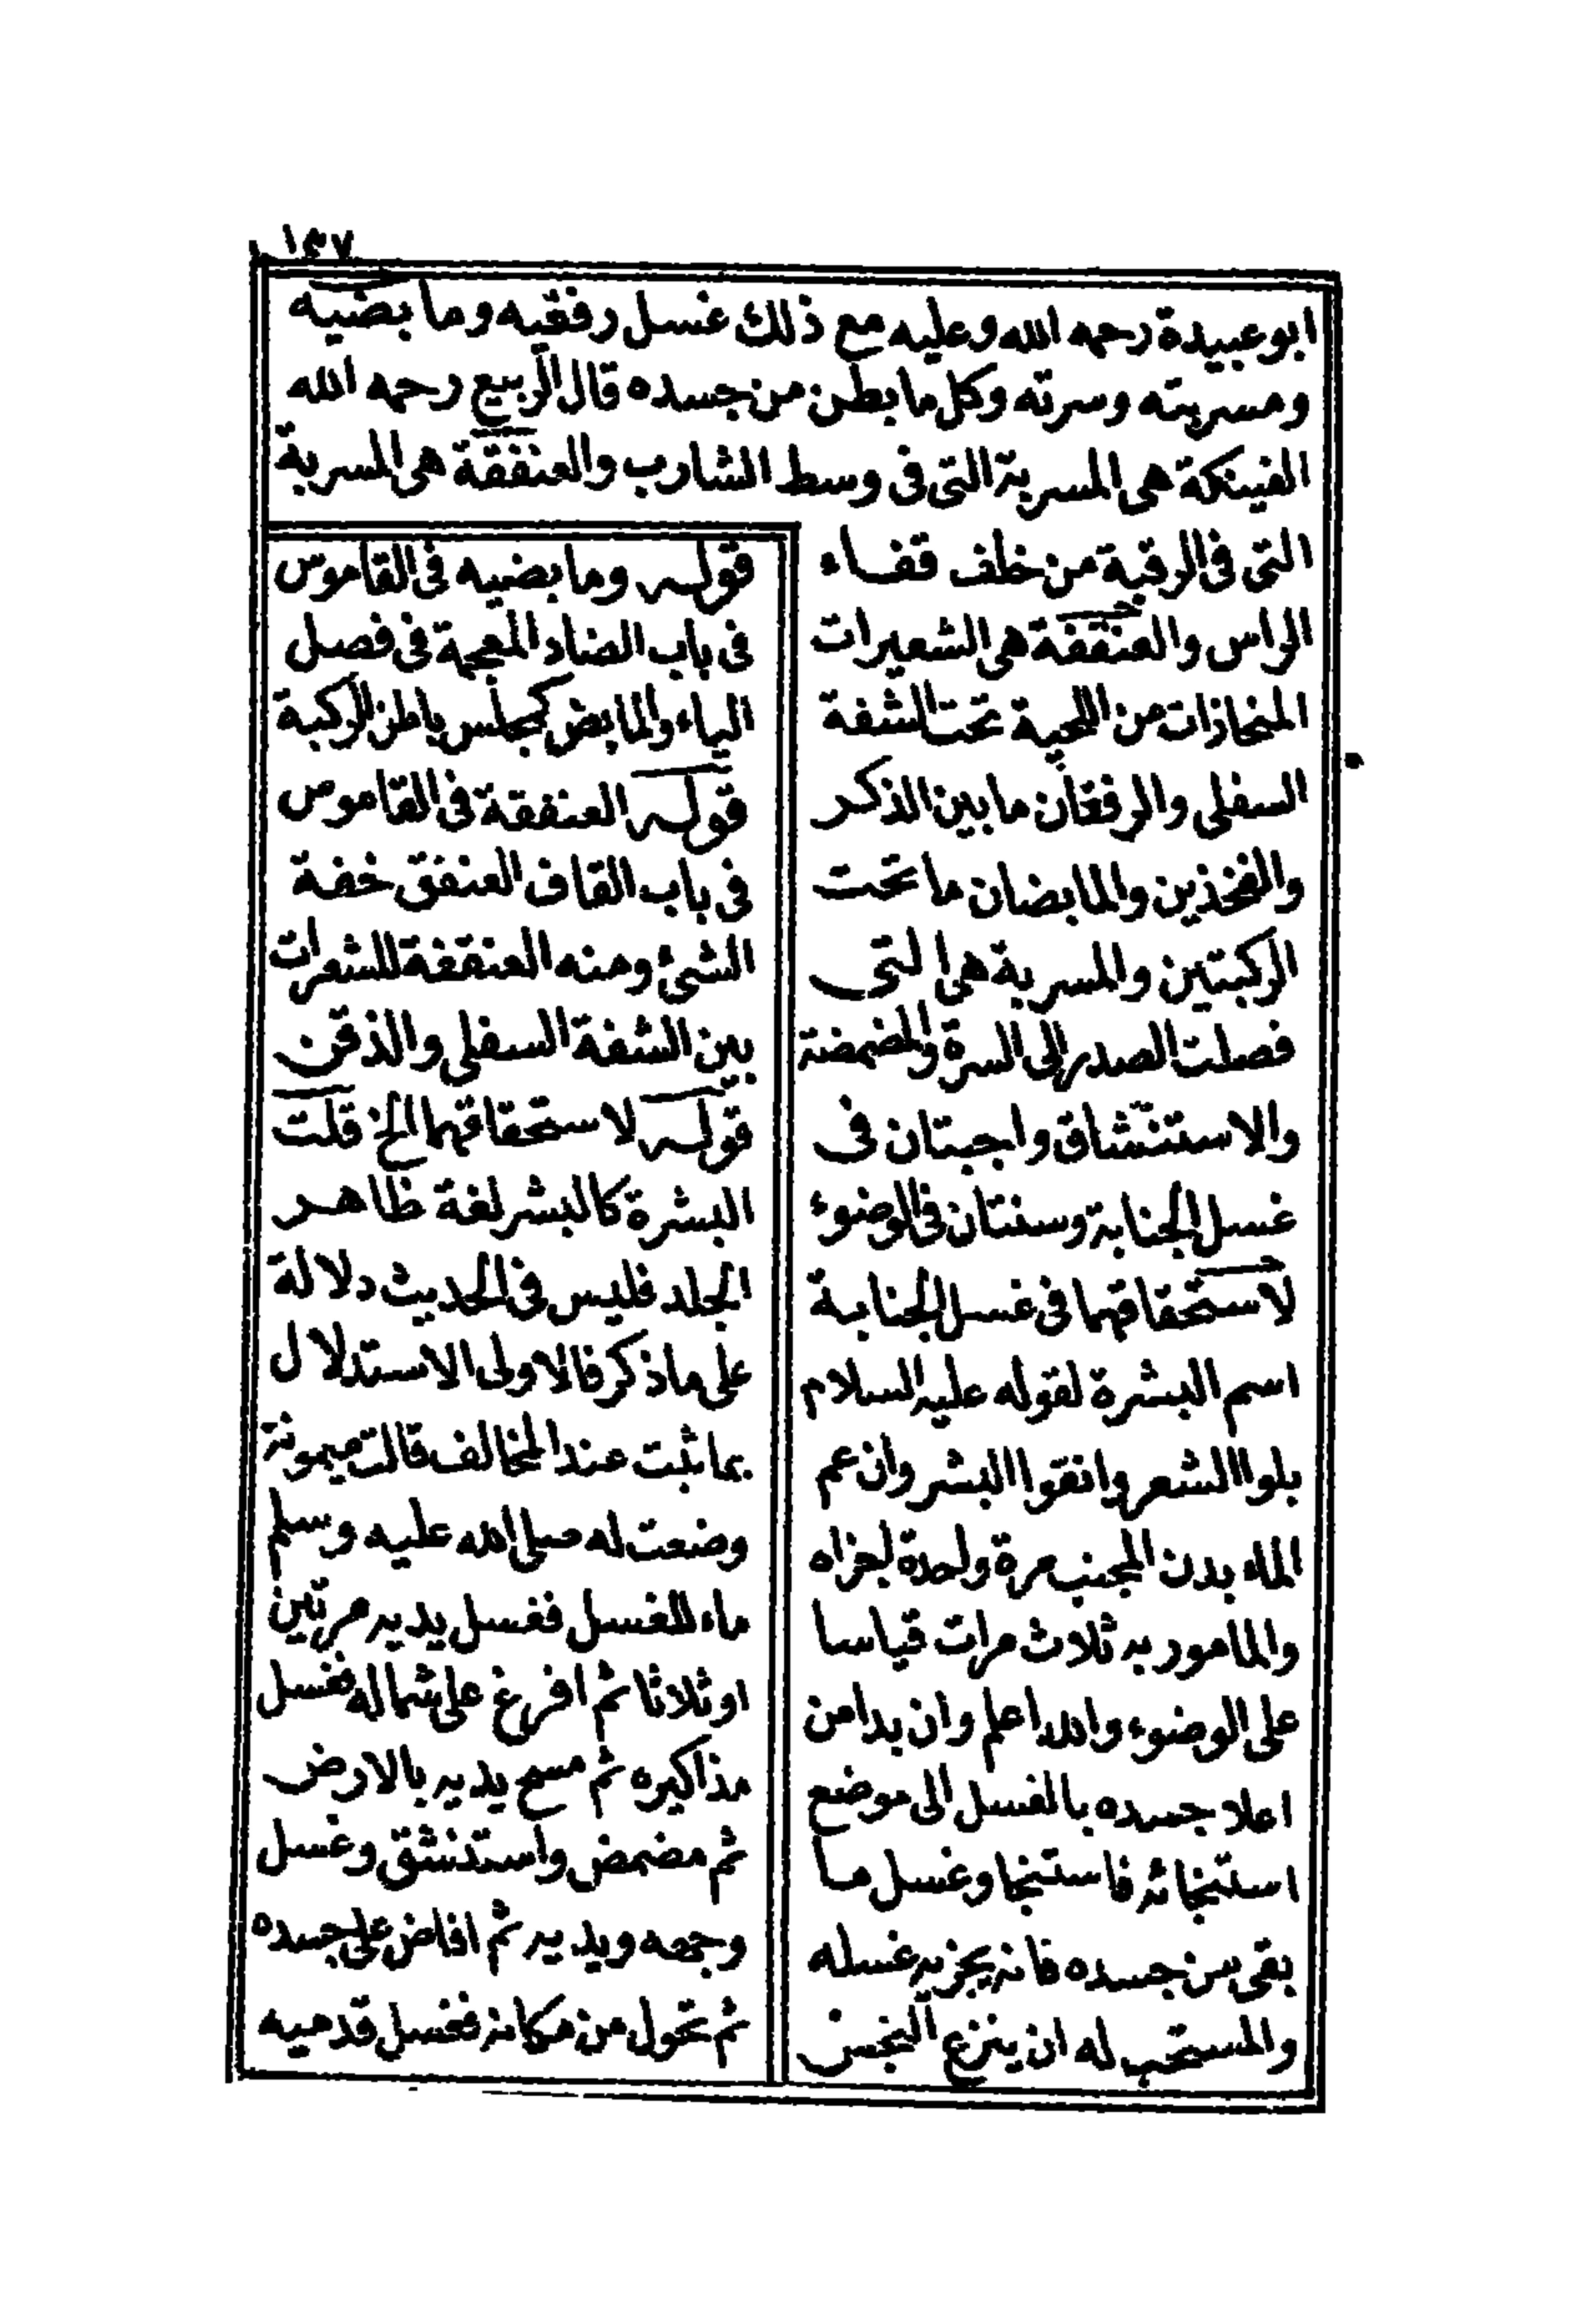 ١٣٧
ابو عبيدة رحمه الله وعليه مع ذلك غسل رفقيه وما بضيه
ومسربته وسرته وكل ما بطن من جسده قال الربيع رحمه الله
الفينكة هى المسربة التى فى وسط الشارب والعنفقة هى المسربة
التى فى الرقبة من خلف قفاء
الراس والعنقفة هى الشعيرات
المنحازات من اللحية تحت الشفة
السفلى والرفغان ما بين الذكر
والفخذين والمابضان ما تحت
الركبتين والمسربة هى التى
فصلت الصدر الى السرة والمضمضة
والاستنشاق واجبتان فى
غسل الجنابة وسنتان فى الوضوء
لاستحقاقهما فى غسل الجنابة
اسم البشرة لقوله عليه السلام
بلوا الشعر وانقوا البشر وان عم
الماء بدن المجنب مرة واحدة اجزاه
والمامور به ثلاث مرات قياسا
على الوضوء والله اعلم وان بدا من
اعلا جسده بالغسل الى موضع
استنجائه فاستنجا وغسل ما
بقى من جسده فانه يجزيه غسله
والمستحب له ان ينزع النجس
قوله وما بضيه فى القاموس
فى باب الضاد المعجمة فى فصل
الياء والمابض كمجلس باطن الركبة
قوله العنفقة فى القاموس
فى باب القاف العنفق خفة
الشئ ومنه العنقفة للشعرات
بين الشفة السفلى والذقن
قوله لاستحقاقهما الخ قلت
البشرة كالبشر لغة ظاهر
الجلد فليس فى الحديث دلالة
على ما ذكر فالاولى الاستدلال
بما ثبت عند المخالف قالت ميمونة
وضعت له صلى الله عليه وسلم
ماء للغسل فغسل يديه مرتين
او ثلاثا ثم افرغ على شماله فغسل
مذاكيره ثم مسح يديه بالارض
ثم مضمض واستنشق وغسل
وجهه ويديه ثم افاض على جسده
ثم تحول من مكانه فغسل قدميه